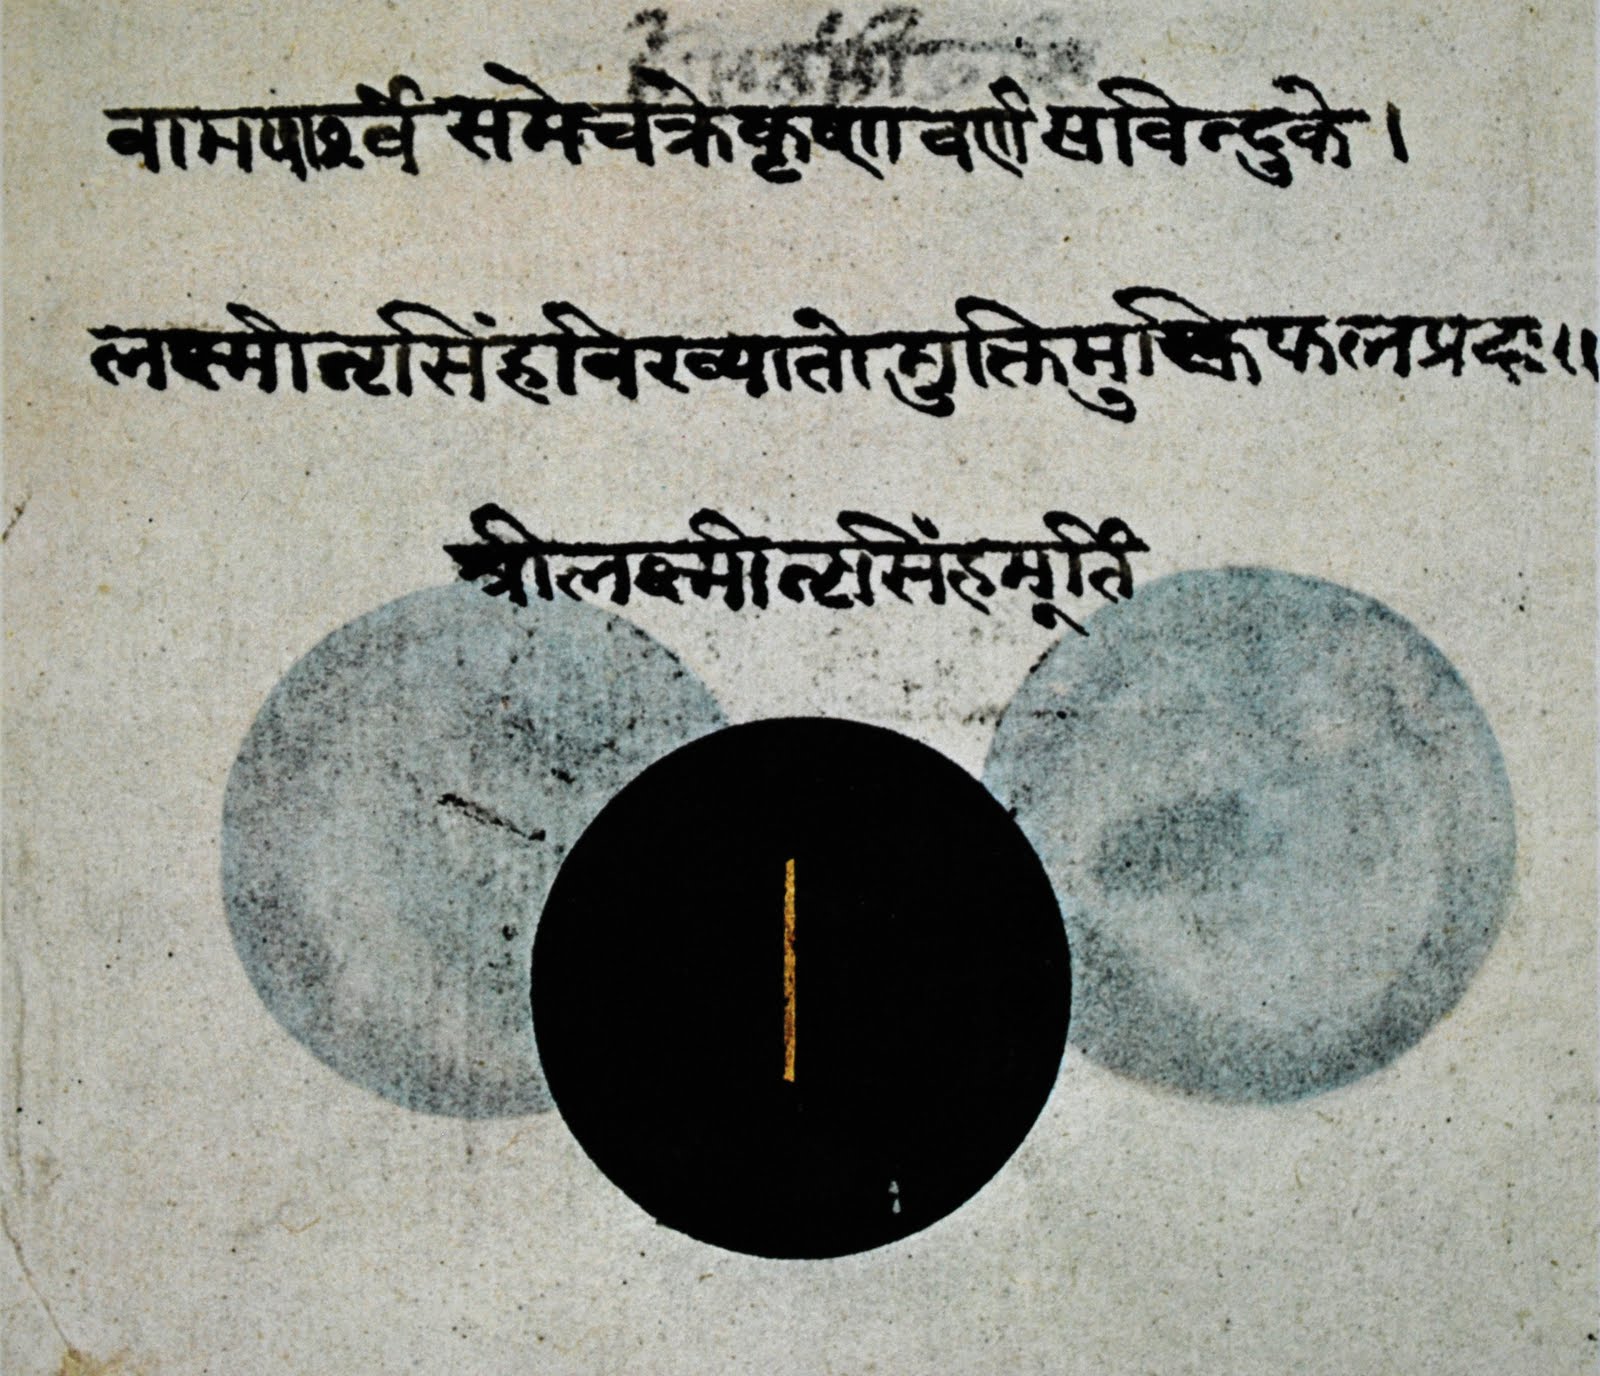 वामपार्श्वे समेचक्रे कृष्णवर्ण सविन्दुके ।
लक्ष्मीनृसिंहविख्यातो भुक्तिमुक्तिफलप्रदः ॥
श्रीलक्ष्मीनृसिंहमूर्ति